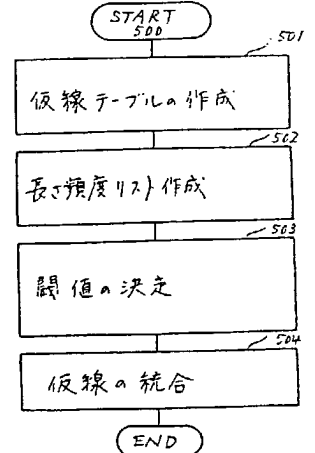 START
500
501
仮線テーブルの作成
502
長さ頻度リスト作成
503
閾値の決定
504
仮線の統合
END